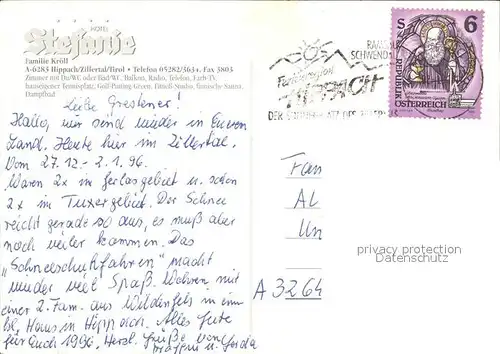 HOTEL
Stefanie
Familie Kröll
A-6283 Hippach/Zillertal/Tirol • Telefon 05282/3634, Fax 3803
Zimmer mit Du/WC oder Bad/WC, Balkon, Radio, Telefon, Farb-TV,
hauseigener Tennisplatz, Golf-Putting-Green, Fitneß-Studio, finnische Sauna,
Dampfbad
Liebe Grestener!
Hallo, wir sind wieder in Eurem
Land. Heute hier im Zillertal.
Vom 27.12.-2.1.96.
Waren 2x im Gerlosgebiet u. schon
2x im Tuxergebiet. Der Schnee
reicht gerade so aus, es muß aber
noch weiter kommen. Das
„Schneeschuhfahren" macht
wieder viel Spaß. Wohnen mit
einer 2. Fam. aus Wildenfels in einem
kl. Haus in Hippach. Alles Gute
für Euch 1996, Herzl. Grüße von
u. Gerda
RAMSAU
SCHWENDAU
Ferienregion
HIPPACH
6
REPUBLIK
ÖSTERREICH
Fam
AL
Un
A 3264
privacy protection
Datenschutz